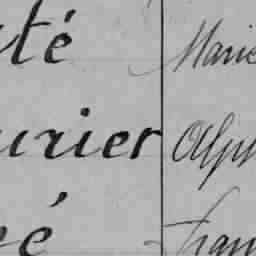 té Marie
urier Alph
é Fran